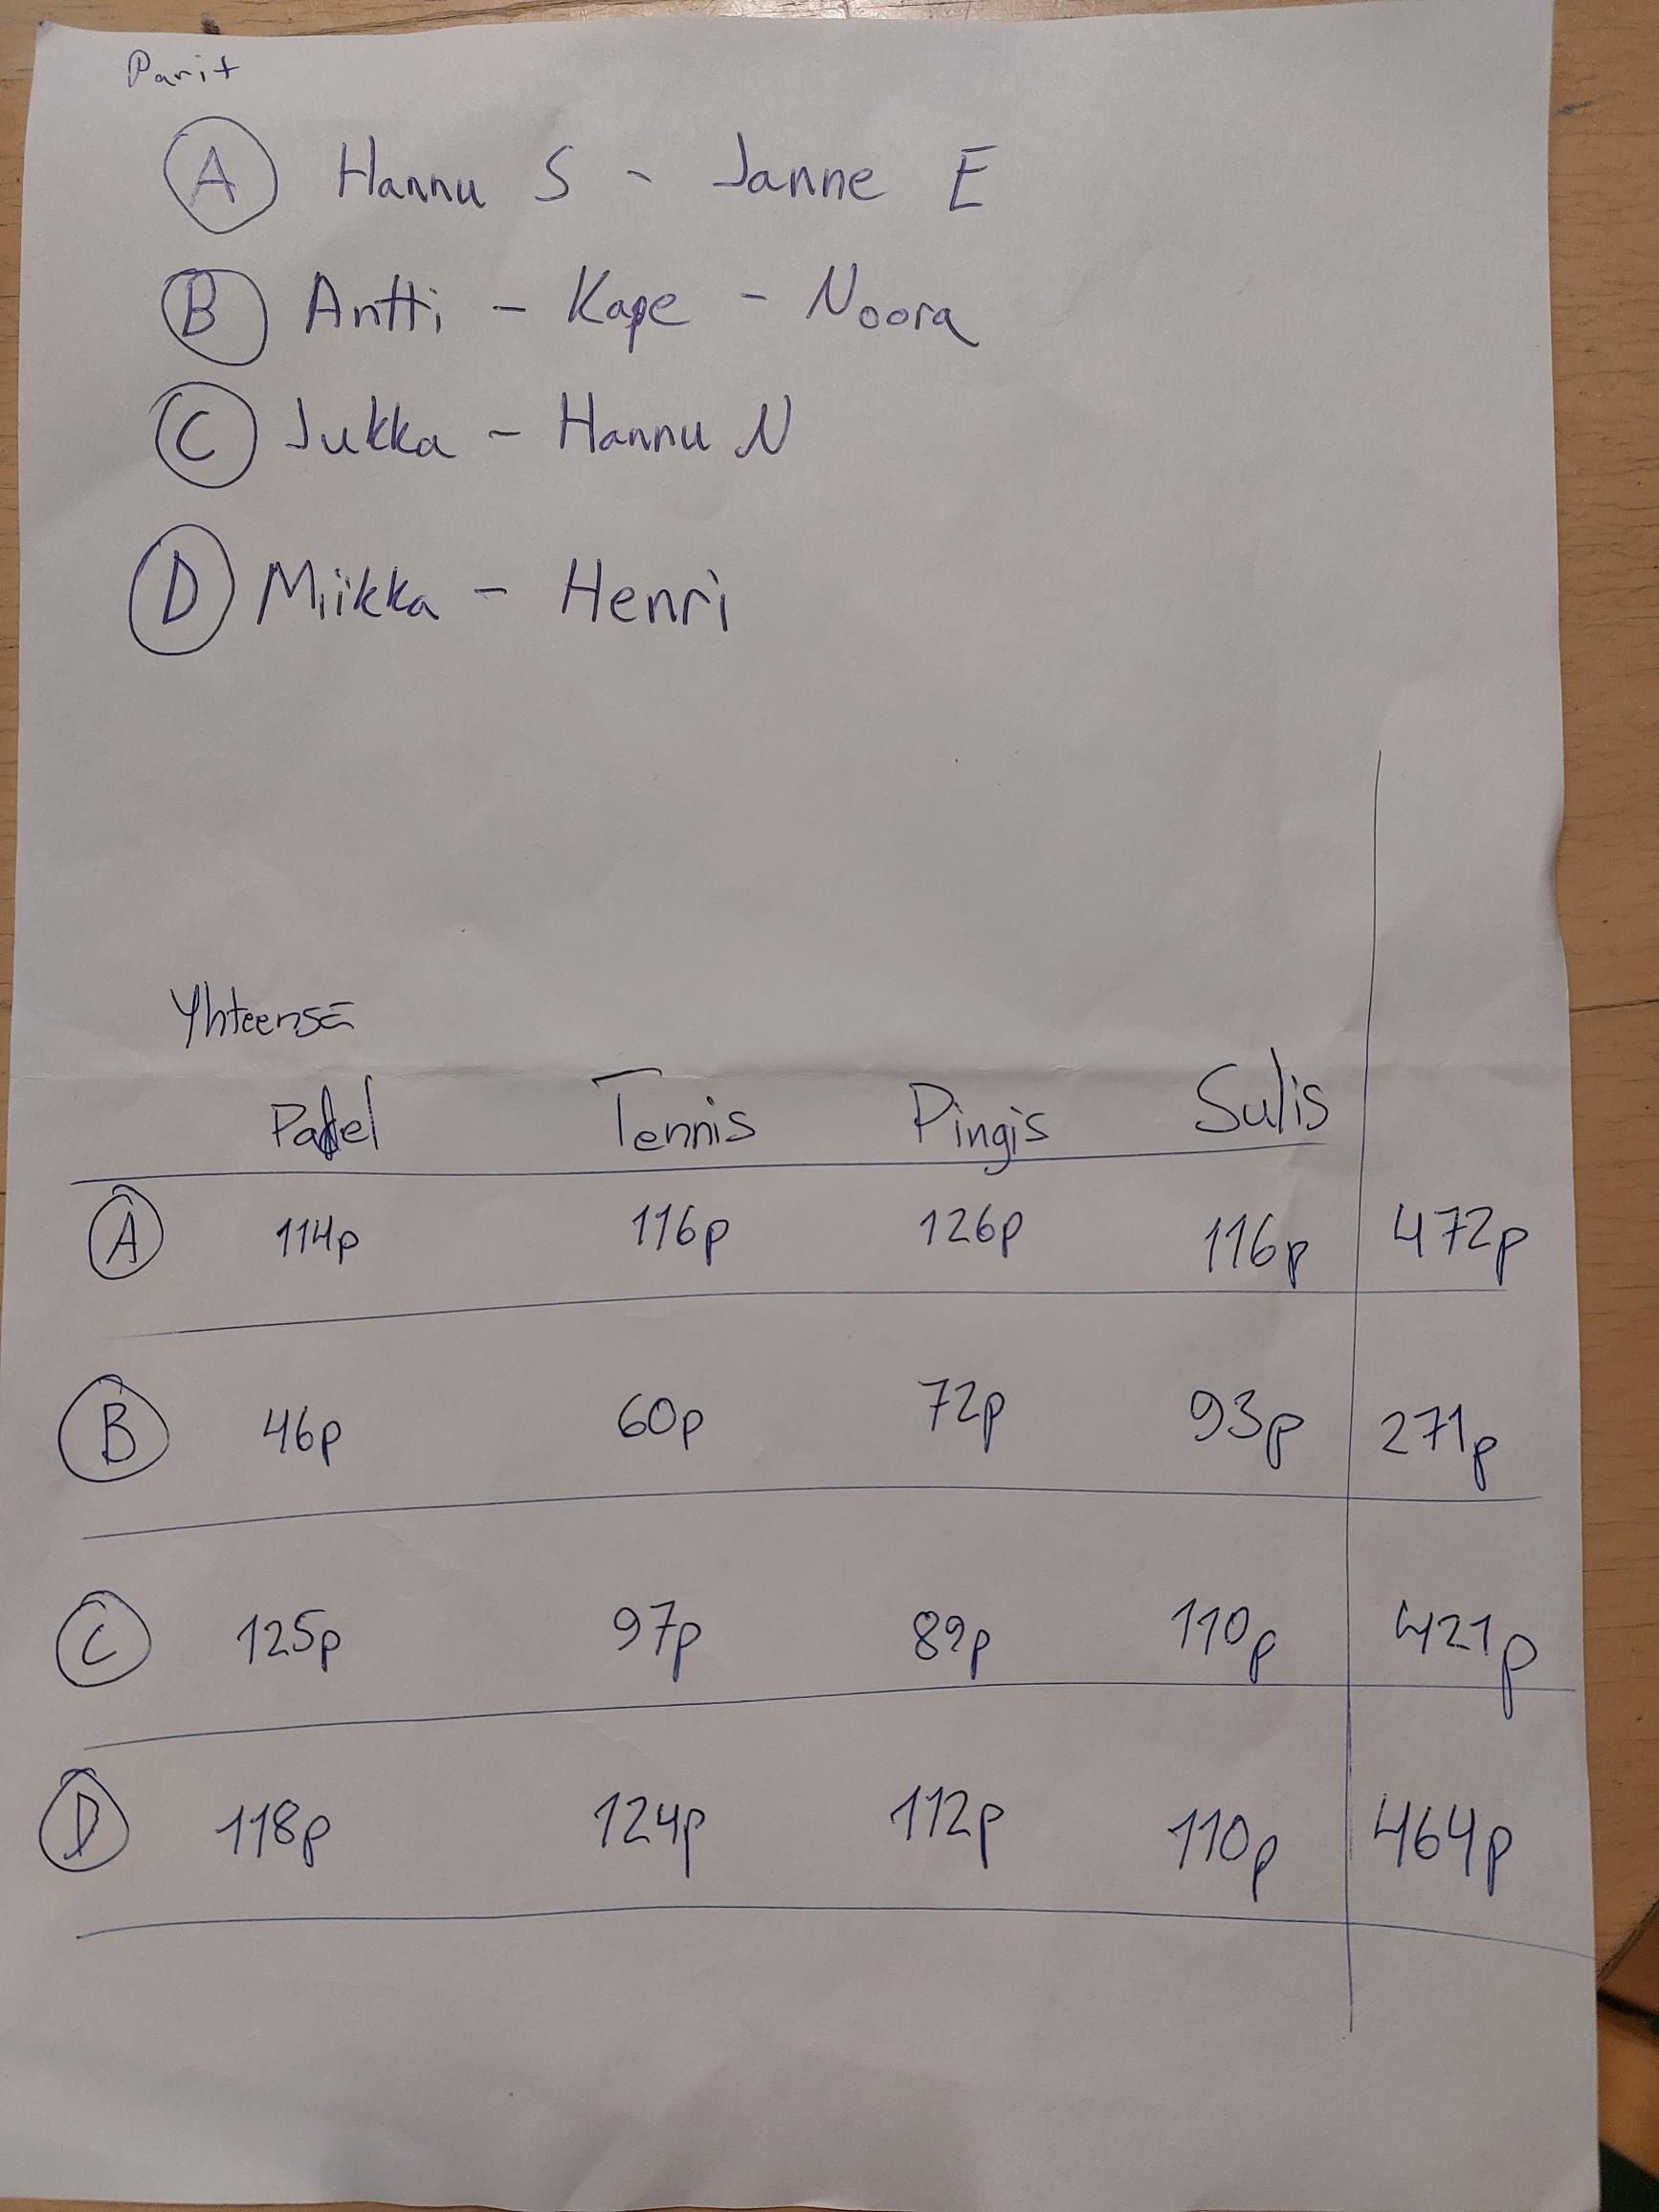 Parit
A Hannu S - Janne E
B Antti - Kape - Noora
C Jukka - Hannu N
D Miikka - Henri
Yhteensä
Padel Tennis Pingis Sulis
A 114p 116p 126p 116p 472p
B 46p 60p 72p 93p 271p
C 125p 97p 89p 110p 421p
D 118p 124p 112p 110p 464p